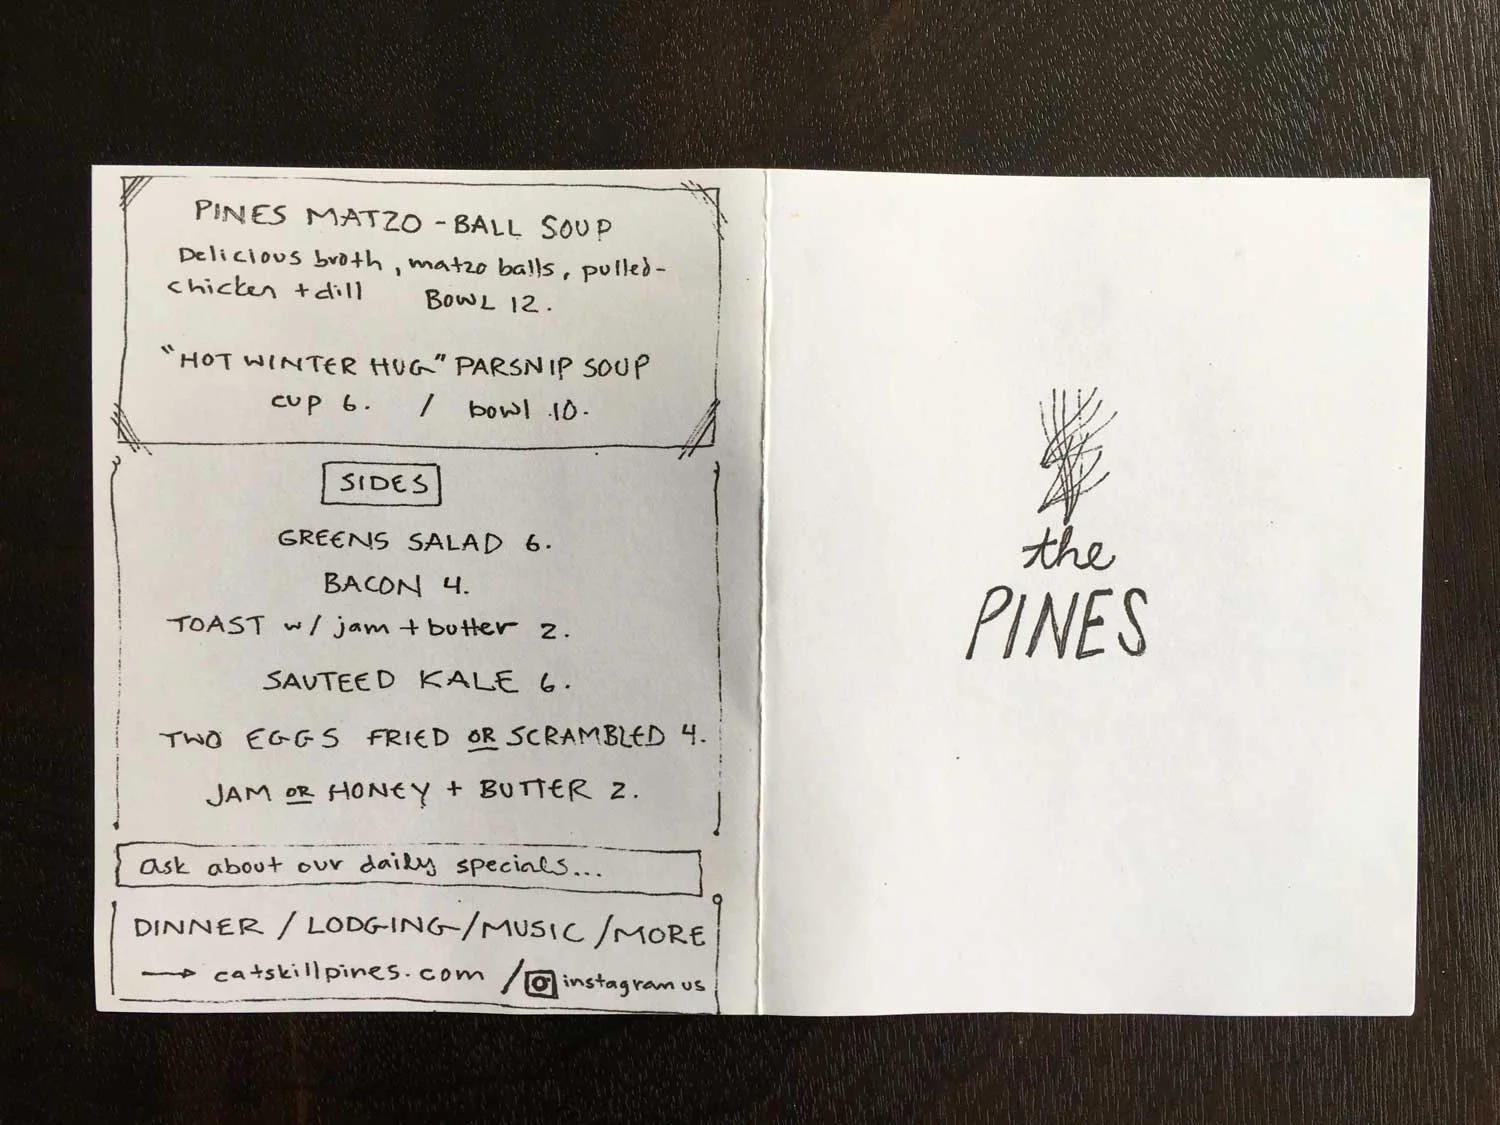 PINES MATZO-BALL SOUP
Delicious broth, matzo balls, pulled-
chicken + dill BOWL 12.
"HOT WINTER HUG" PARSNIP SOUP
CUP 6. / bowl 10.
SIDES
GREENS SALAD 6.
BACON 4.
TOAST w/ jam + butter 2.
SAUTEED KALE 6.
TWO EGGS FRIED OR SCRAMBLED 4.
JAM OR HONEY + BUTTER 2.
ask about our daily specials...
DINNER / LODGING / MUSIC / MORE
→ catskillpines.com / instagram us
the
PINES